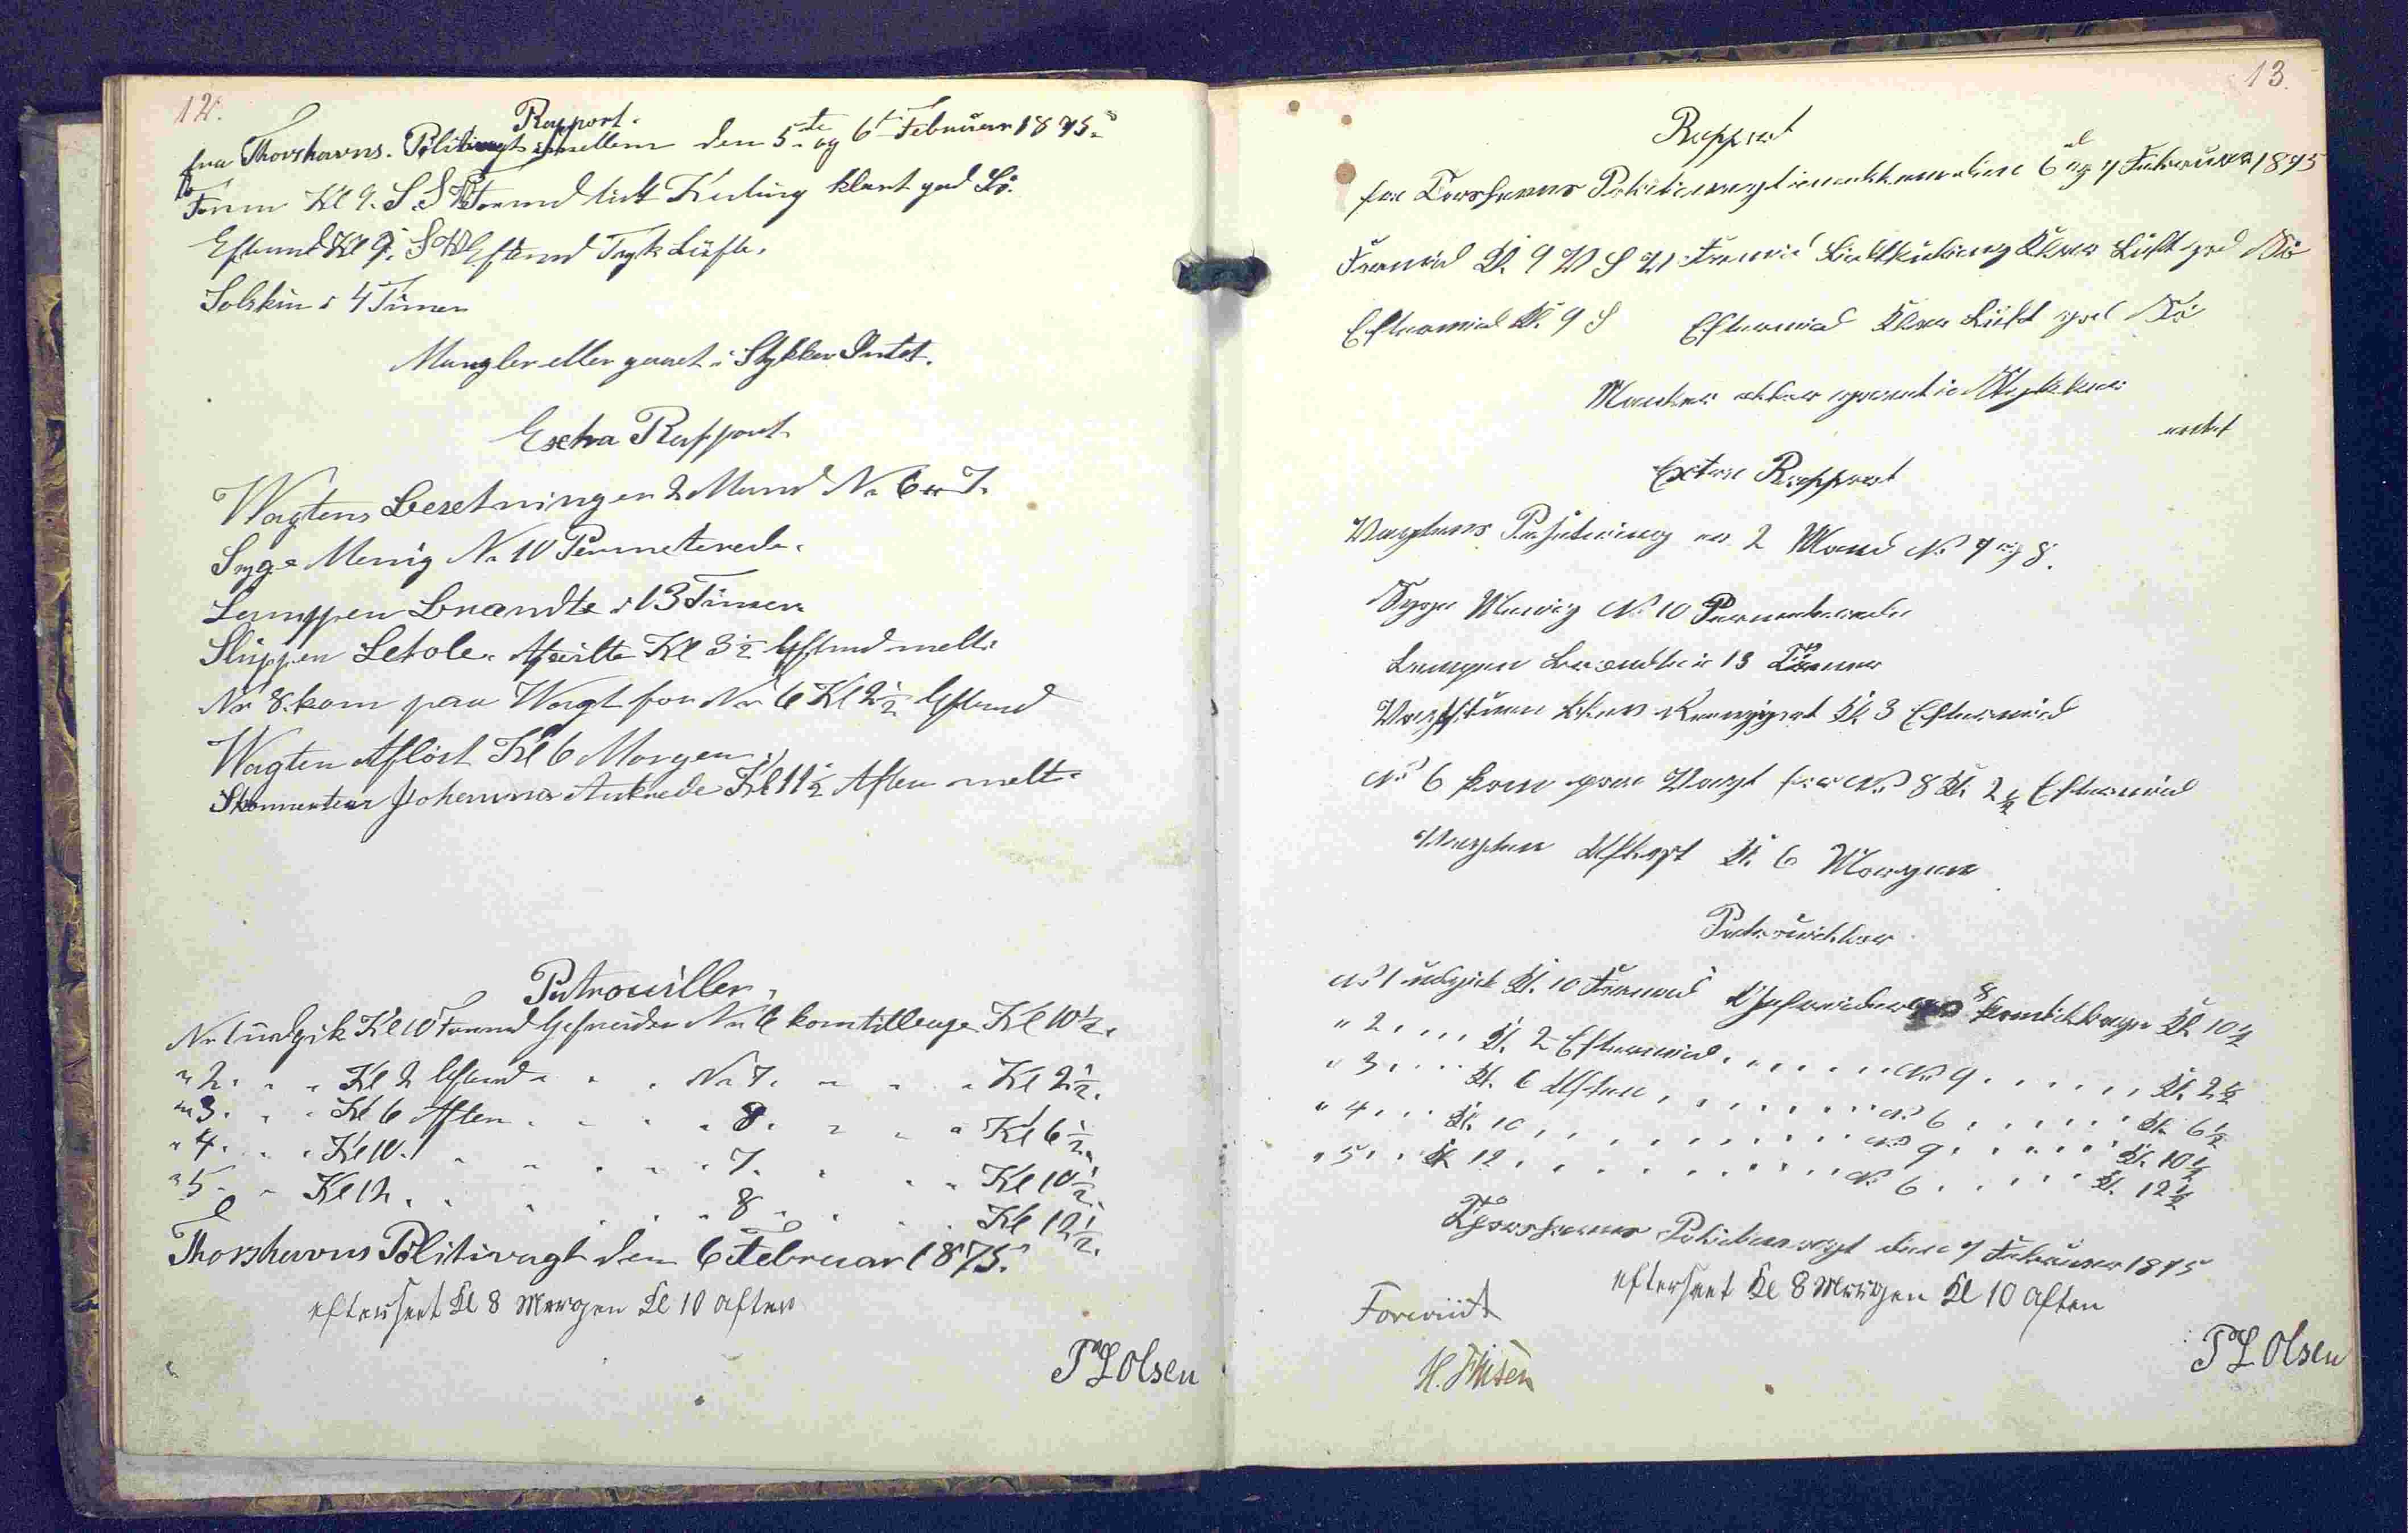 12.
Rapport.
fra Thorshavns. Politivagt imellem den 5te og 6te Februar 1875.
Form Kl 9. S. S W Formd let Kuling klart god Sö.
Eftmd Kl 9. S W Eftmd Tyk Luft.
Solskin i 4 Timer
Mangler eller gaaet i Stykker Intet.
Extra Rapport
Wagtens Besetning er 2 Mand No 6 o 7.
Syge Menig No 10 Permeterede.
Lampen Brændte i 13 Timer
Sluppen Kl 3½ Eftmd melt.
No 8. kom paa Wagt for No 6 Kl 2½ Eftmd
Wagten Aflöst Kl 6 Morgen
Johanna Ankrede Kl 11½ Aften melt.
Patrouiller,
No 1 udgik Kl 10 Formd Gefreider No 6 kom tilbage Kl 10½.
" 2. " " Kl 2 Eftmd " " " No 7. " " " Kl 2½.
" 3. " " Kl 6 Aften " " " " 8. " " " Kl 6½.
" 4. " " Kl 10. " " " " " 7. " " " Kl 10½.
" 5 " " Kl 12. " " " " " 8 " " " Kl 12½.
Thorshavns Politivagt den 6 Februar 1875.
efterseet Kl 8 Morgen Kl 10 aften
P L Olsen
13.
Rapport
fra Torshavns Politivagt imellem den 6 og 7 Februar 1875
Formid Kl. 9 V S V Formid Kuling Klar Luft god Sö
Eftermid Kl. 9 S Eftermid Klar Luft god Sö
Manker eller gaaet i Stykker
intet
Extra Rapport
Vagtens Besetning er 2 Mand No 7 og 8.
Syge Menig No 10 Permeterede
Lampen Brændte i 13 Timer
Vagtstuen blev Rengjort Kl. 3 Eftermid
No 6 kom paa Vagt for No 8 Kl. 2½ Eftermid
Vagten Aflöst Kl. 6 Morgen
Patrouiller
No 1 udgik Kl. 10 Formid Gefreider No 8 kom tilbage Kl. 10½
" 2 " " Kl. 2 Eftermid " " " No 9 " " " Kl. 2½
" 3 " " Kl. 6 Aften " " " No 6 " " " Kl. 6½
" 4 " " Kl. 10 " " " No 9 " " " Kl. 10½
" 5 " " Kl 12 " " " No 6 " " " Kl. 12½
Thorshavns Politivagt den 7 Februar 1875
efterseet Kl 8 Morgen Kl 10 aften
Forevist
P L Olsen